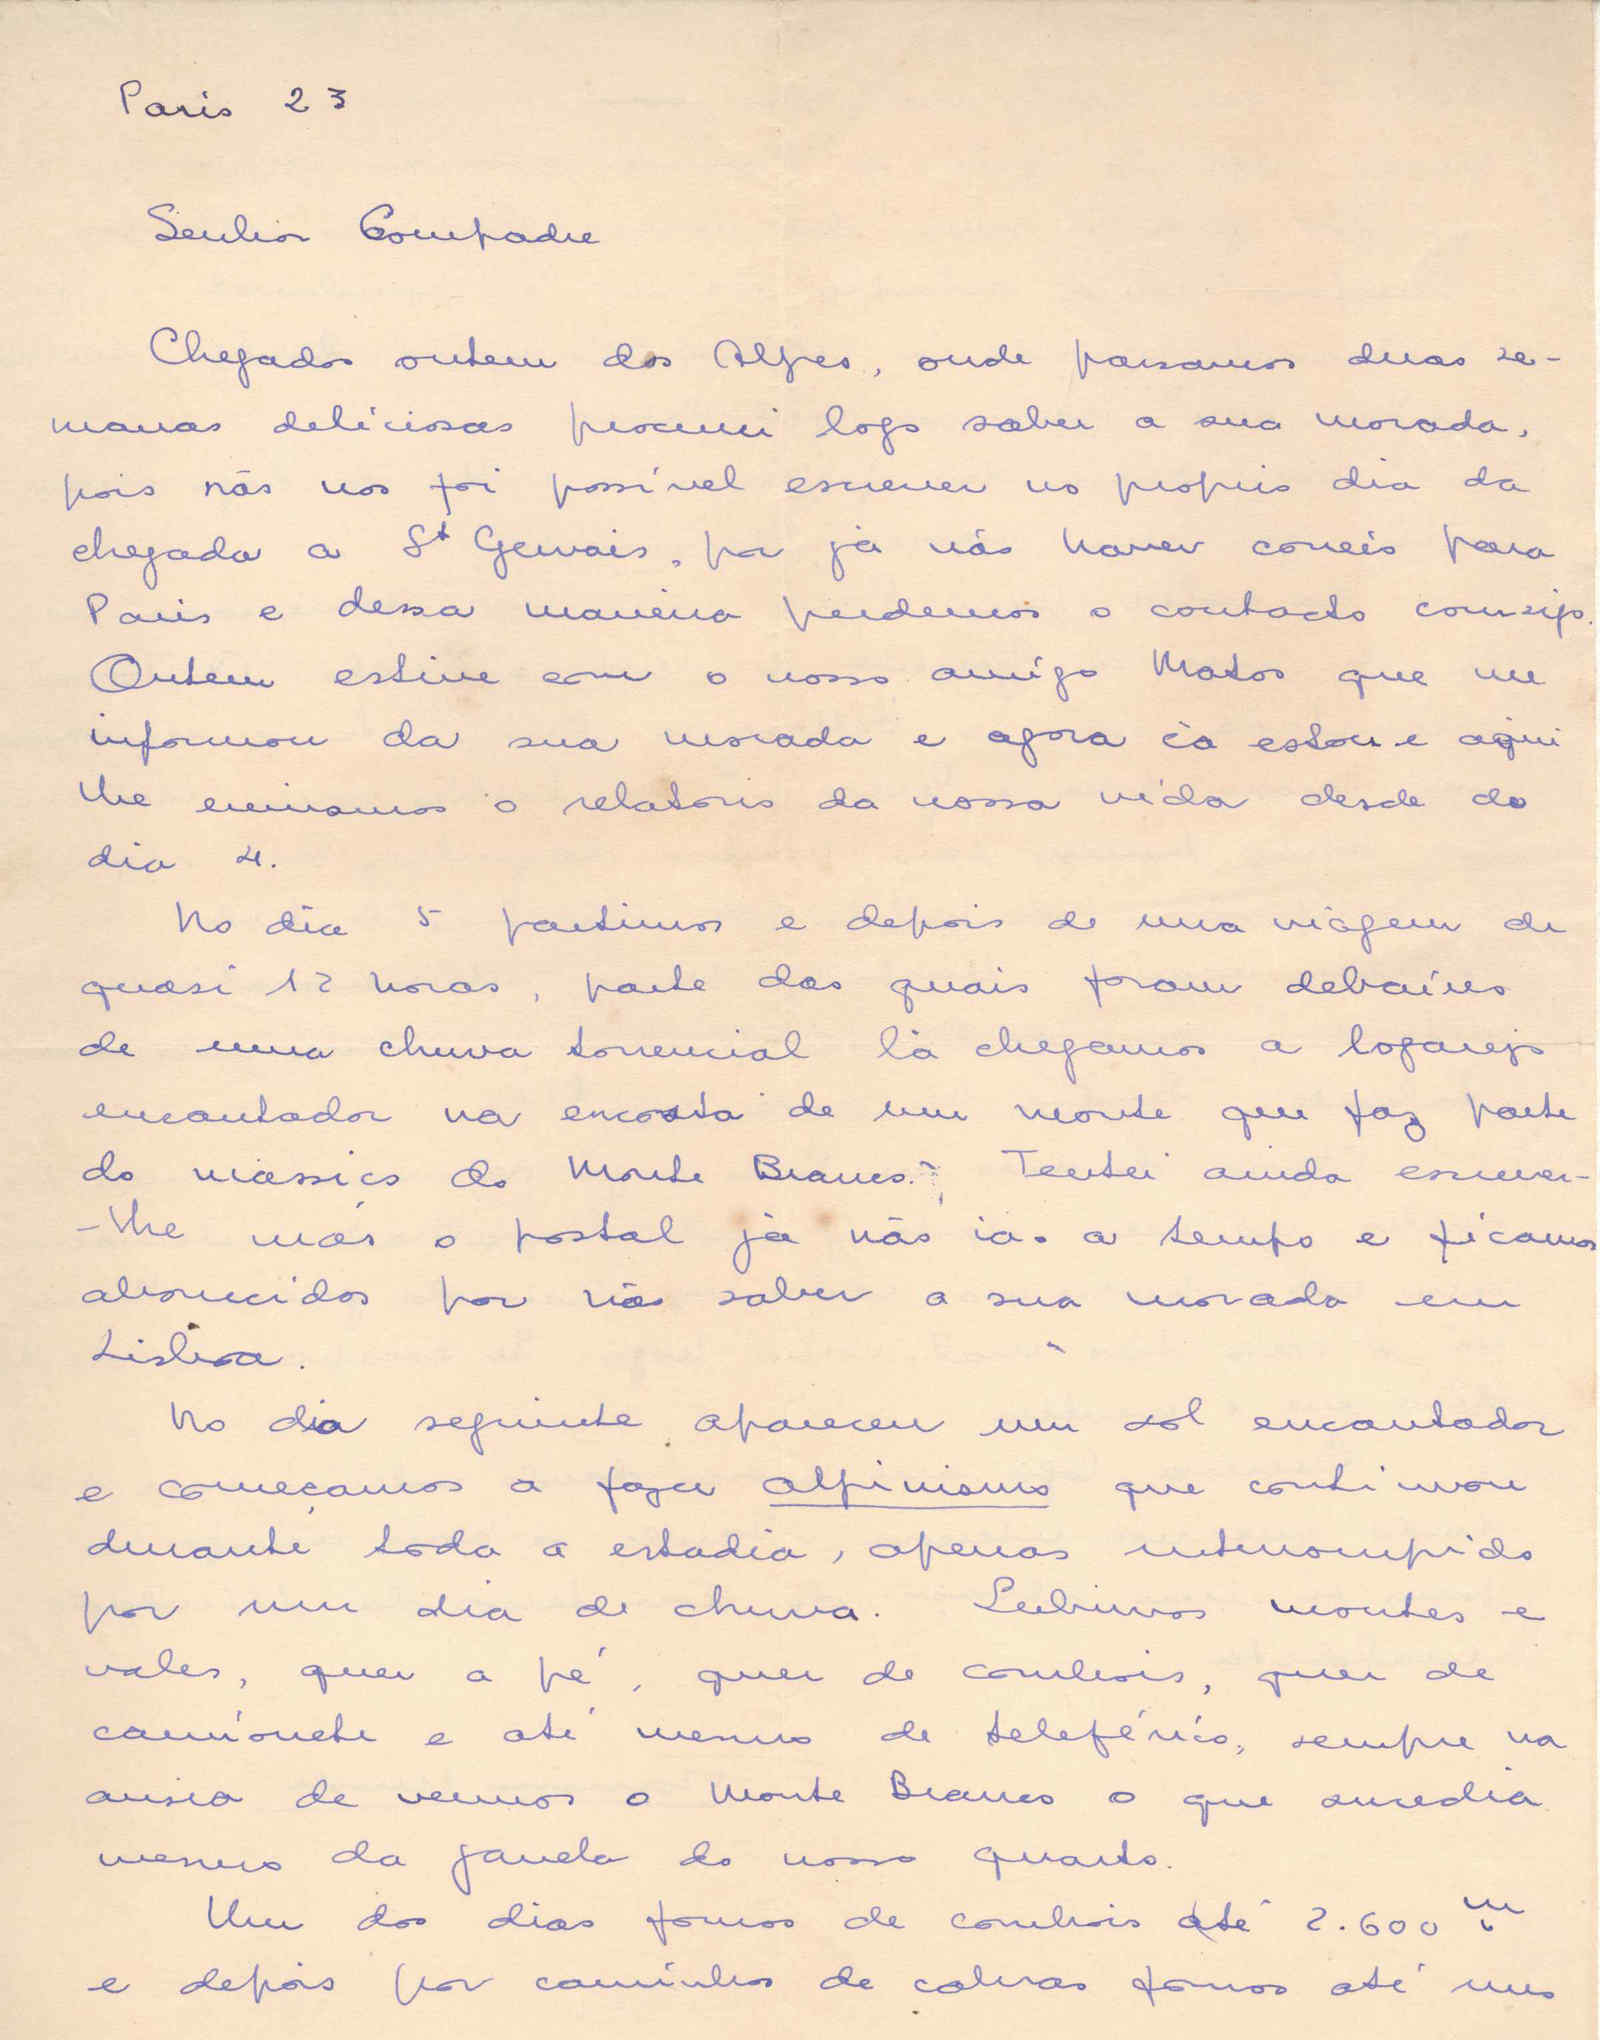 Paris 23
Senhor Compadre
Chegados ontem dos Alpes, onde passamos duas se-
manas deliciosas procurei logo saber a sua morada,
pois não nos foi possível escrever no proprio dia da
chegada a St Gervais, por já não haver correio para
Paris e dessa maneira perdemos o contacto comsigo.
Ontem estive com o nosso amigo Matos que me
informou da sua morada e agora cá estou e aqui
lhe enviamos o relatorio da nossa vida desde do
dia 4.
No dia 5 partimos e depois de uma viágem de
quasi 12 horas, parte das quais foram debaixo
de uma chuva torrencial lá chegamos a logarejo
encantador na encosta de um monte que faz parte
do massiço do Monte Branco. Tentei ainda escrever-
-lhe mas o postal já não ia a tempo e ficamos
aborrecidos por não saber a sua morada em
Lisboa.
No dia seguinte apareceu um sol encantador
e começamos a fazer alpinismo que continuou
durante toda a estadia, apenas interrompido
por um dia de chuva. Subimos montes e
vales, quer a pé, quer de comboio, quer de
camionete e até mesmo de teleférico, sempre na
ansia de vermos o Monte Branco o que sucedia
mesmo da janela do nosso quarto.
Um dos dias fomos de comboio até 2.600 m
e depois por caminhos de cabras fomos até uns